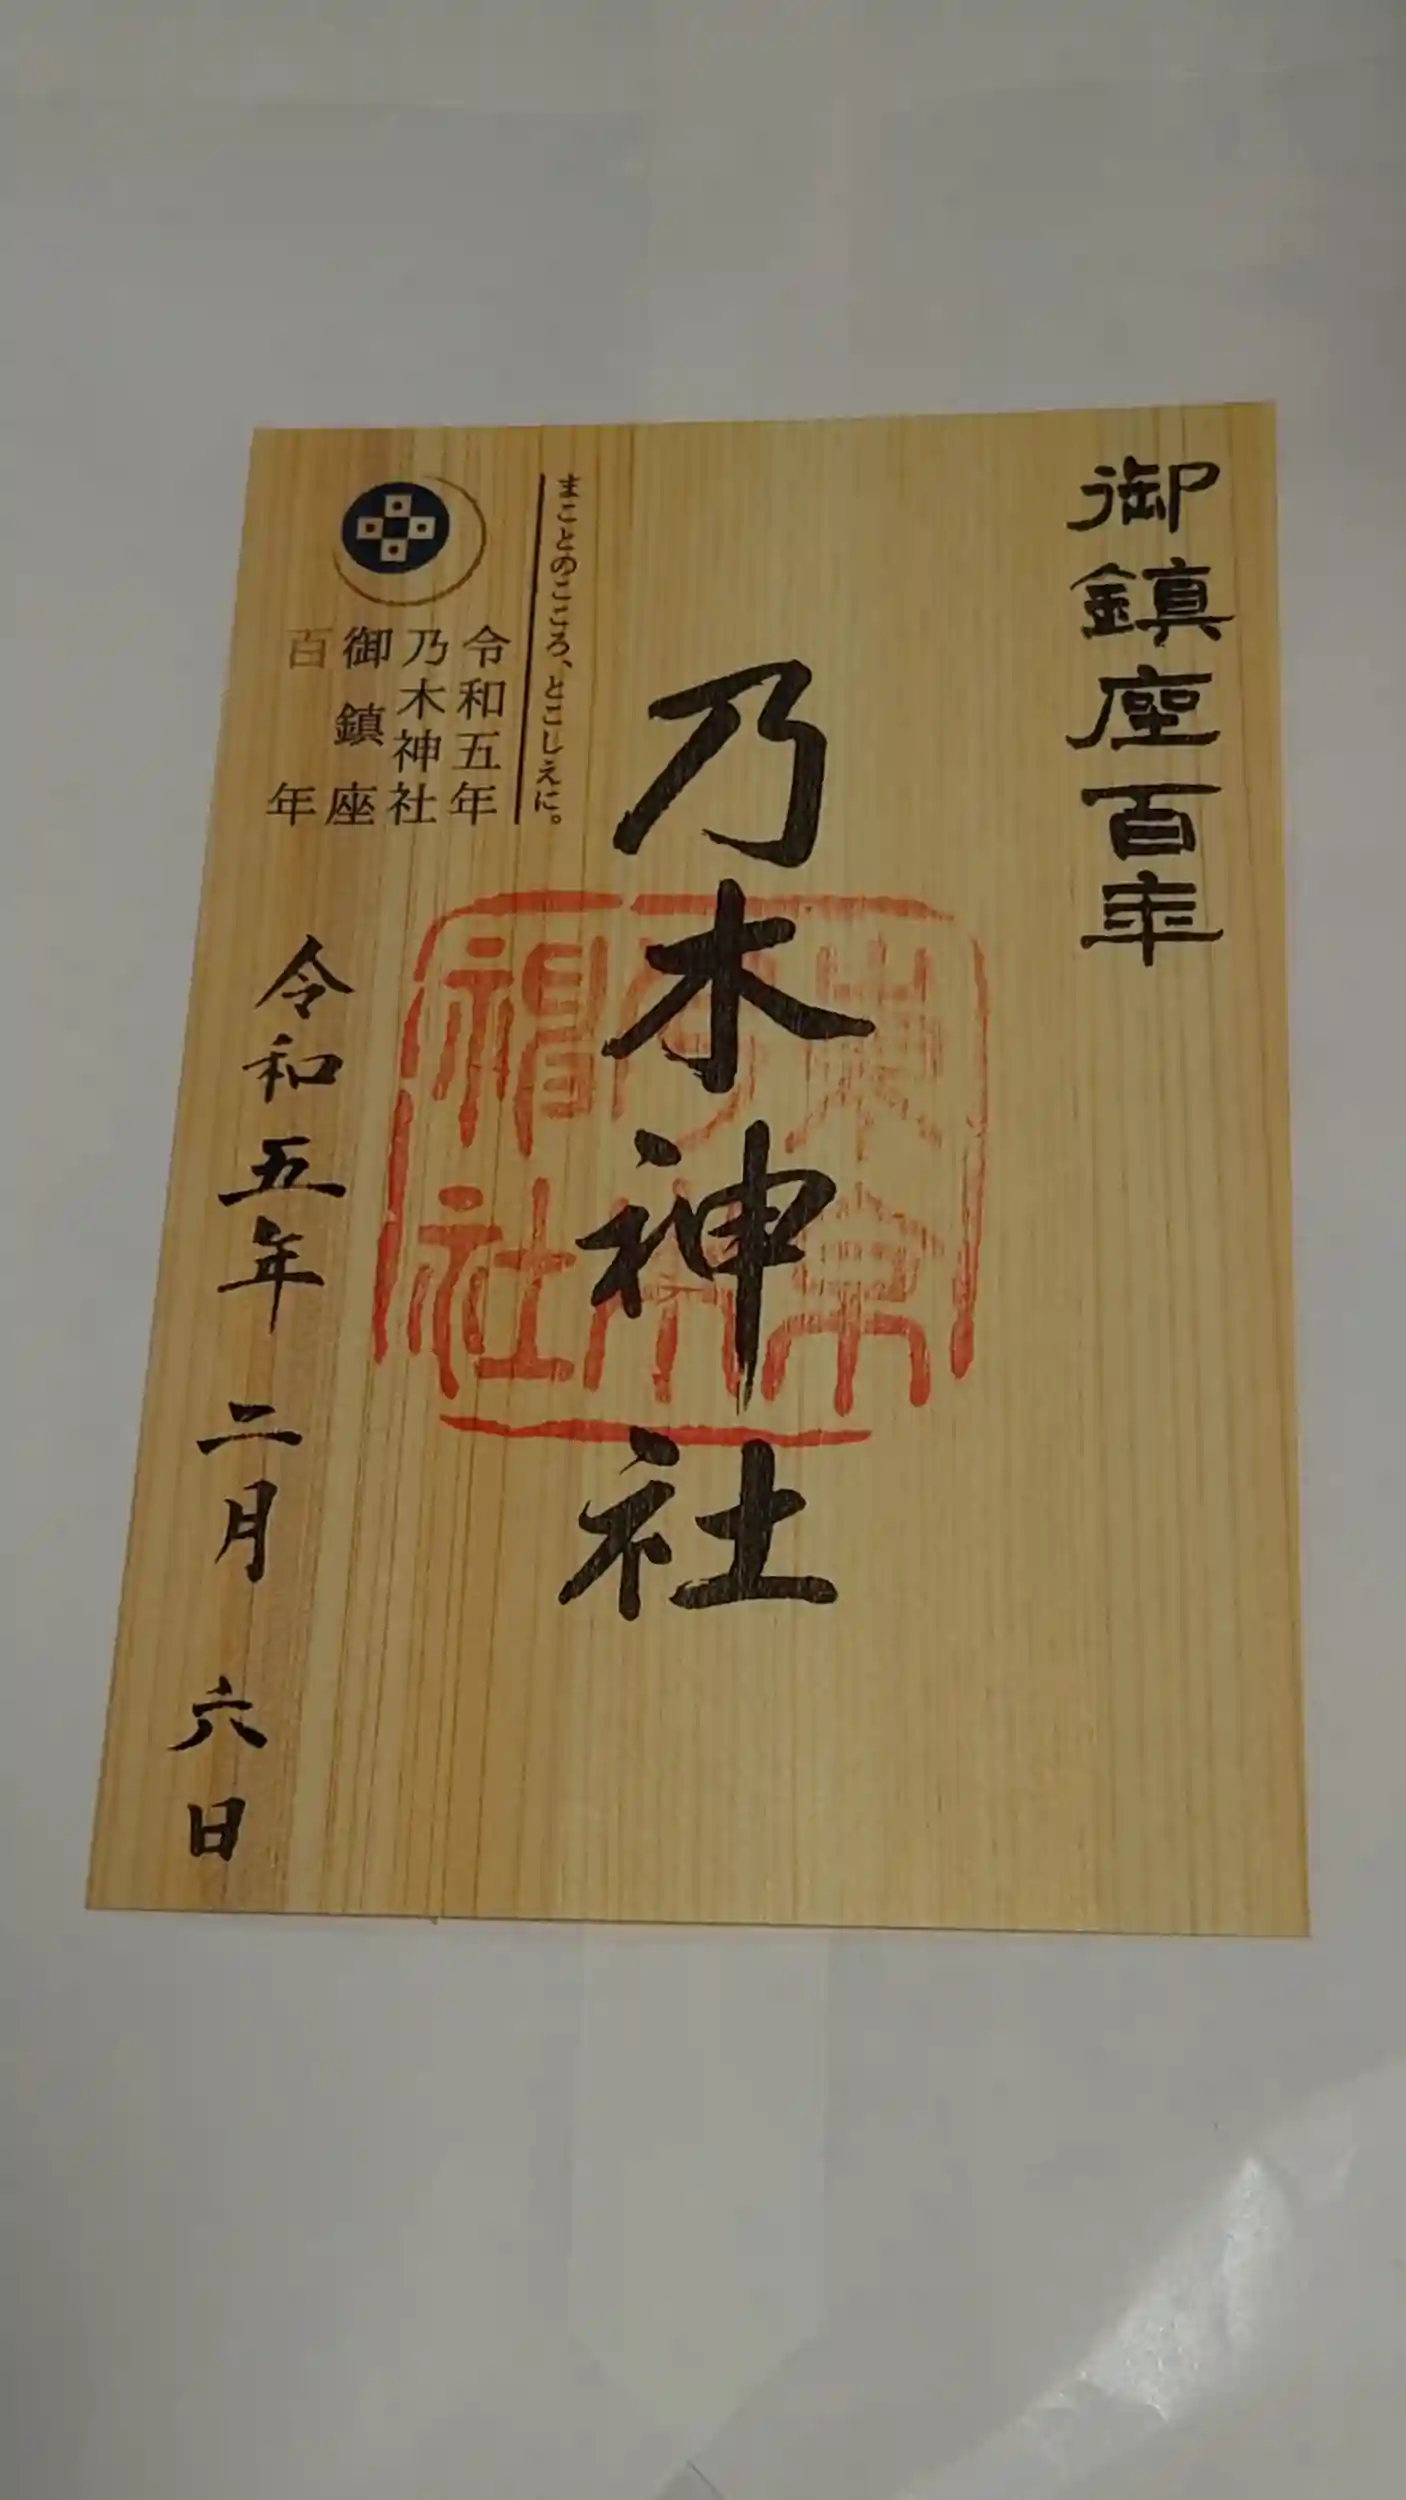 御鎮座百年
乃木神社
東京
乃木
神社
まことのこころ、とこしえに。
令和五年
乃木神社
御鎮座
百年
令和五年二月六日